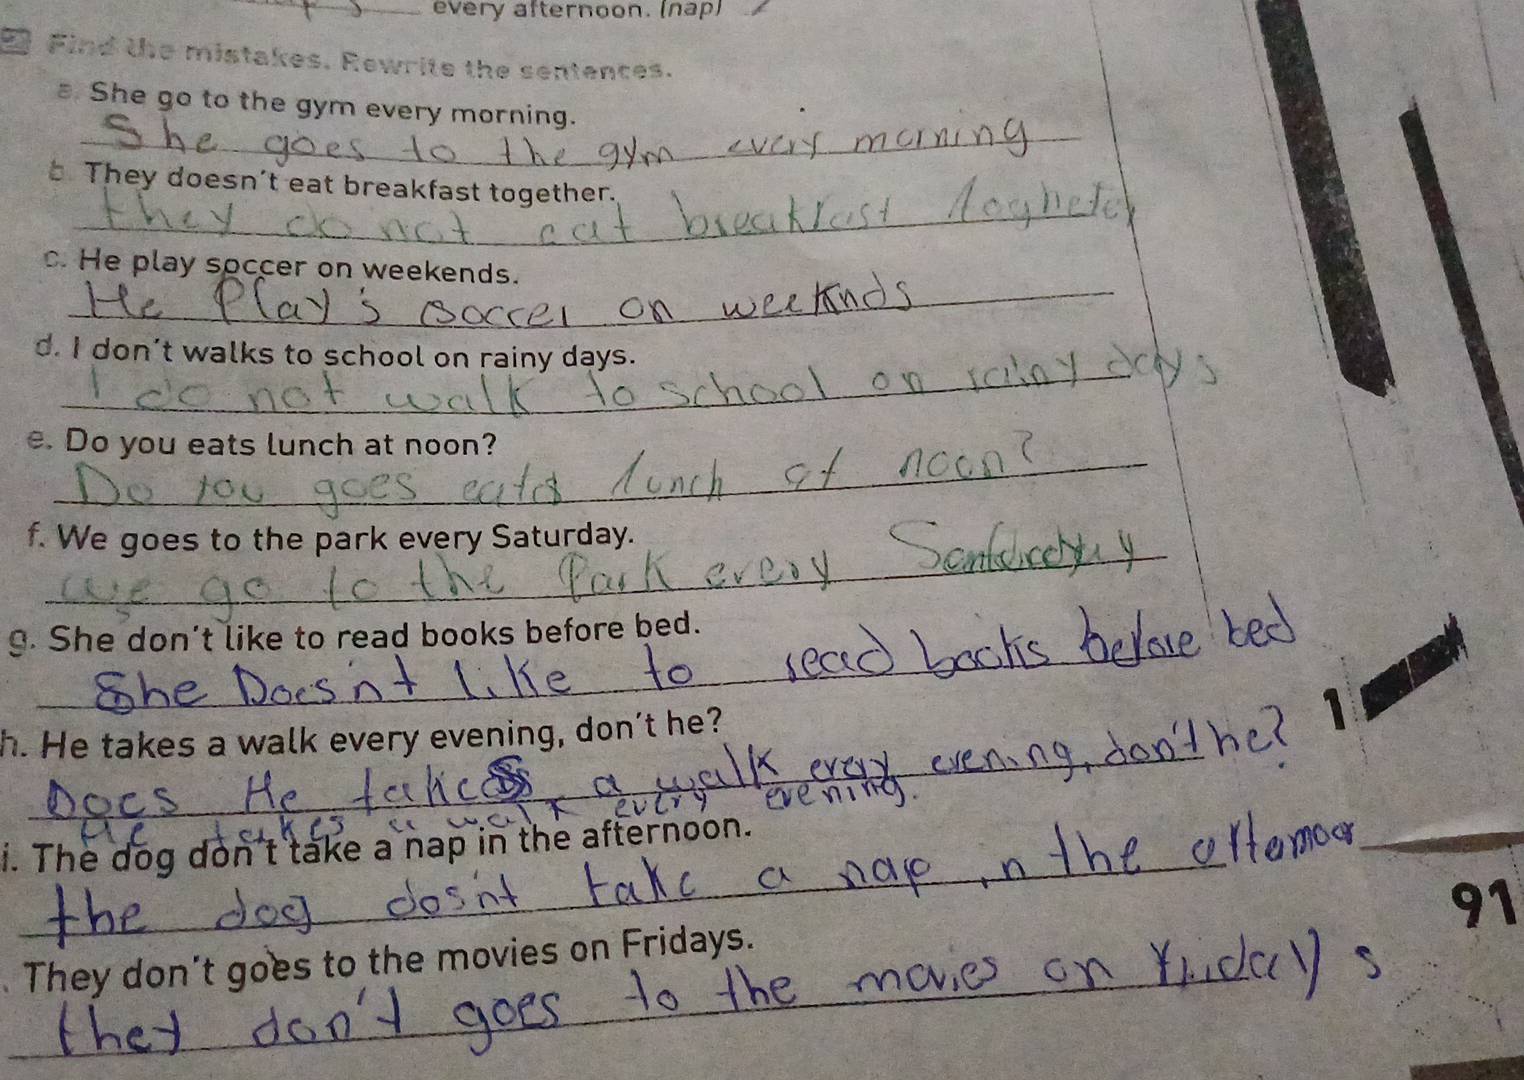 every afternoon. (nap)
Find the mistakes. Rewrite the sentences.
a. She go to the gym every morning.
She goes to the gym every morning
b. They doesn't eat breakfast together.
they do not eat breakfast
c. He play soccer on weekends.
He Play's soccer on weeknds
d. I don't walks to school on rainy days.
I do not walk to school on rainy days
e. Do you eats lunch at noon?
Do you goes lunch at noon?
f. We goes to the park every Saturday.
we go to the Park every
g. She don't like to read books before bed.
She Does'nt like to read books before bed
h. He takes a walk every evening, don't he?
Does He takes a walk every evening, don't he?
He takes a walk every evening.
i. The dog don't take a nap in the afternoon.
the dog dos'nt take a nap in the
91
They don't goes to the movies on Fridays.
they don't goes to the movies on Fridays